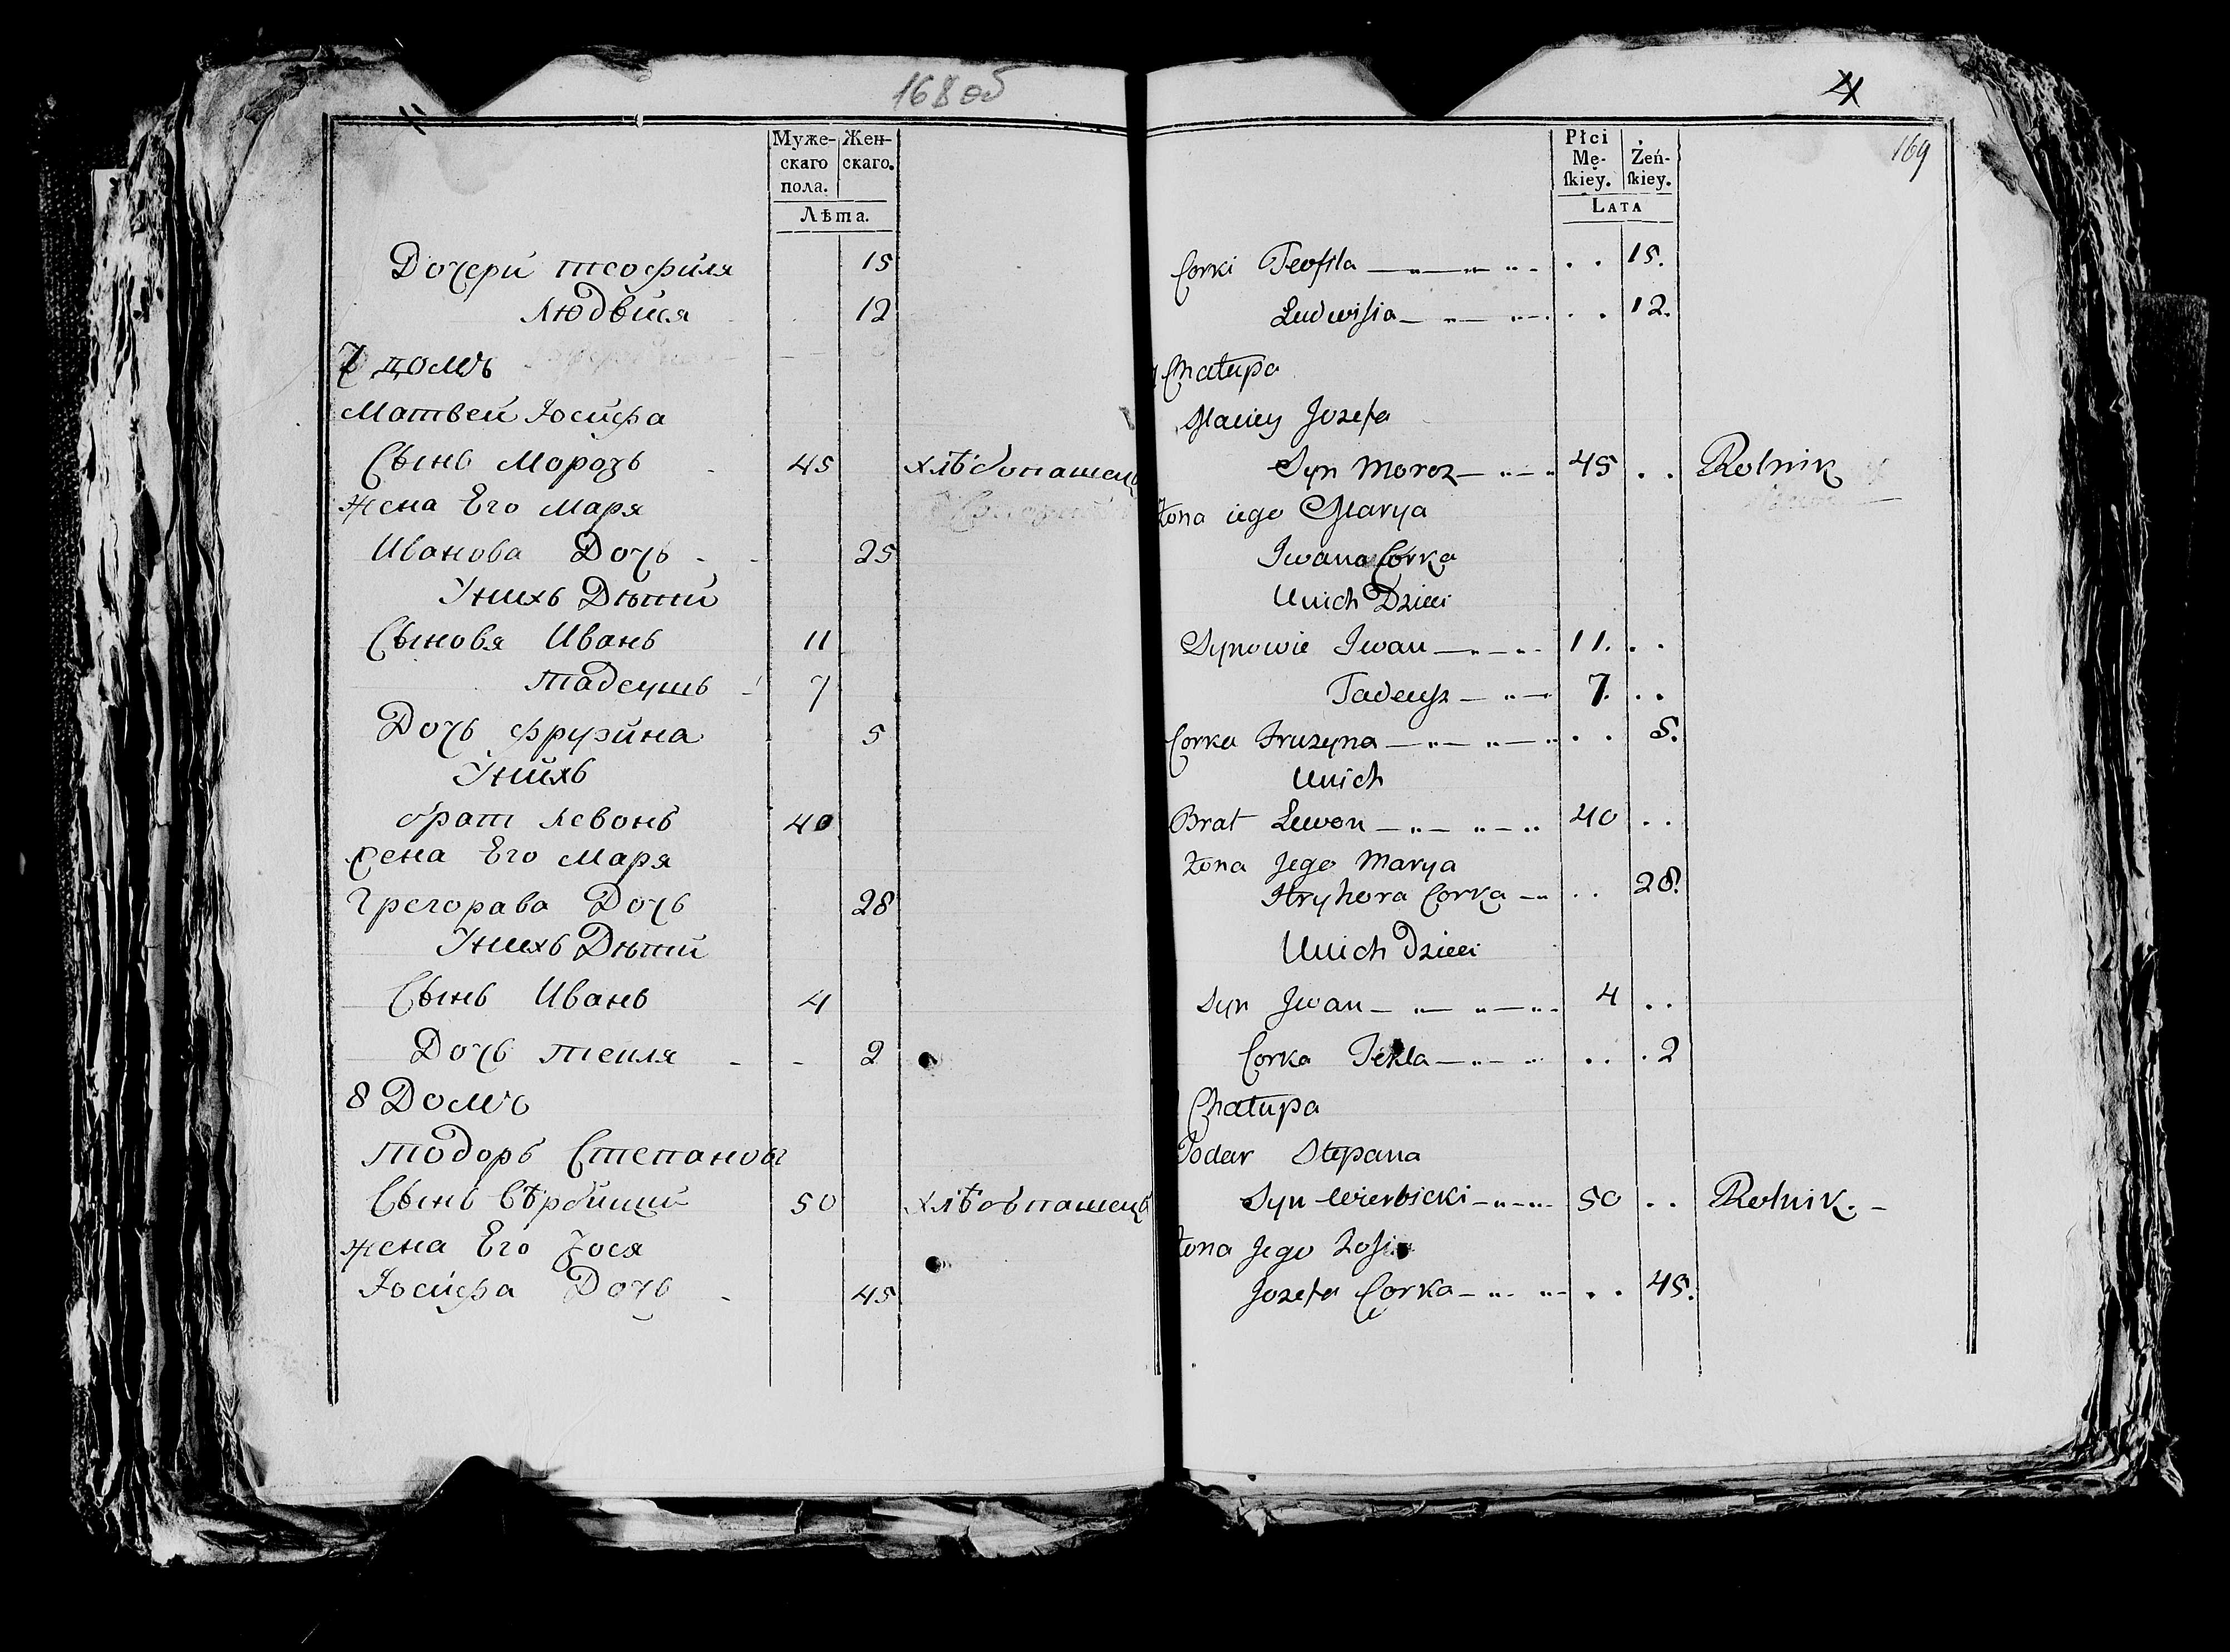 168 об
Муже- Жен-
скаго скаго.
пола.
Лѣта.
Дочери теофиля 15
Людвися 12
7 домъ
Матвей Іосифа
Сынъ Морозъ 45 хлѣбопашецъ
жена Его Маря
Иванова Дочъ 25
Унихъ Дѣтий
Сыновя Иванъ 11
тадеушъ 7
Дочъ фрузина 5
Унихъ
братъ Левонъ 40
жена Его Маря
Грегорава Дочъ 28
Унихъ Дѣтий
Сынъ Иванъ 4
Дочъ текля 2
8 Домъ
тодоръ Степановъ
Сынъ вѣрбицки 50 хлѣбопашецъ
жена Его Зося
Іосифа Дочъ 45
4
169
Płci
Mę- Żeń-
ſkiey. ſkiey.
LATA
Corki Teofila 15.
Ludwisia 12.
Chałupa
Maciey Jozefa
Syn Moroz 45 Rolnik
żona iego Marya
Iwana Córka
Unich Dzieci
Synowie Iwan 11.
Tadeusz 7.
Corka Fruzyna 5.
Unich
Brat Lewon 40
żona Jego Marya
Hryhora Corka 28.
Unich Dzieci
Syn Jwan 4
Corka Tekla 2
Chałupa
Todar Stepana
Syn Wierbicki 50 Rolnik.
żona Jego Zosia
Jozefa Corka 45.